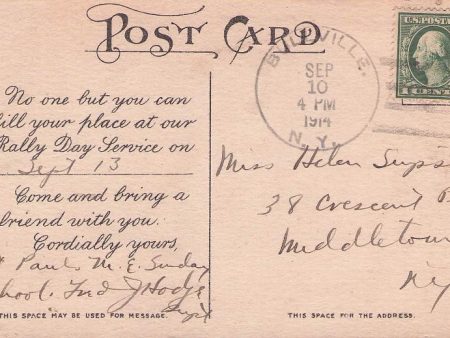 POST CARD
U.S. POSTAGE
1 CENT 1
BULLVILLE.
SEP
10
4 PM
1914
N. Y.
No one but you can
fill your place at our
Rally Day Service on
Sept 13
Come and bring a
friend with you.
Cordially yours,
Paul's M. E. Sunday
School. Fred J Hodge
Supt
THIS SPACE MAY BE USED FOR MESSAGE.
Miss Helen
38 Crescent
Middletown
N.Y.
THIS SPACE IS FOR THE ADDRESS.